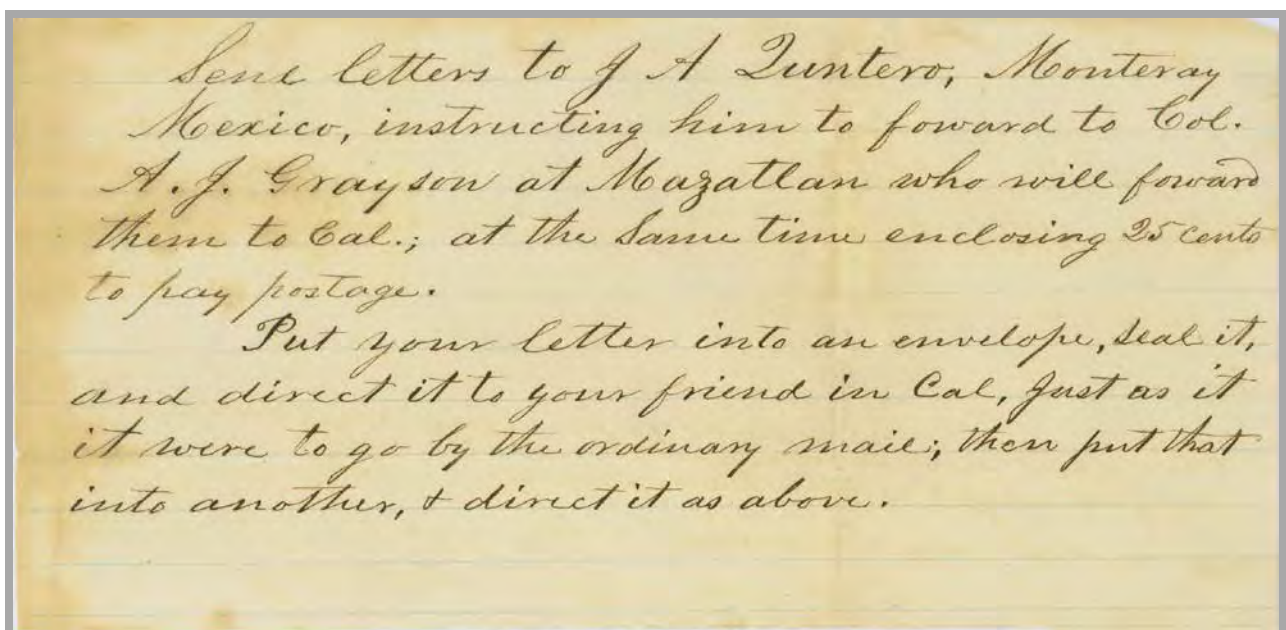 Send letters to J A Quntero, Monteray
Mexico, instructing him to foward to Col.
A. J. Grayson at Mazatlan who will foward
them to Cal.; at the Same time enclosing 25 cents
to pay postage.
Put your letter into an envelope, seal it,
and direct it to your friend in Cal, Just as it
it were to go by the ordinary mail; then put that
into another, & direct it as above.